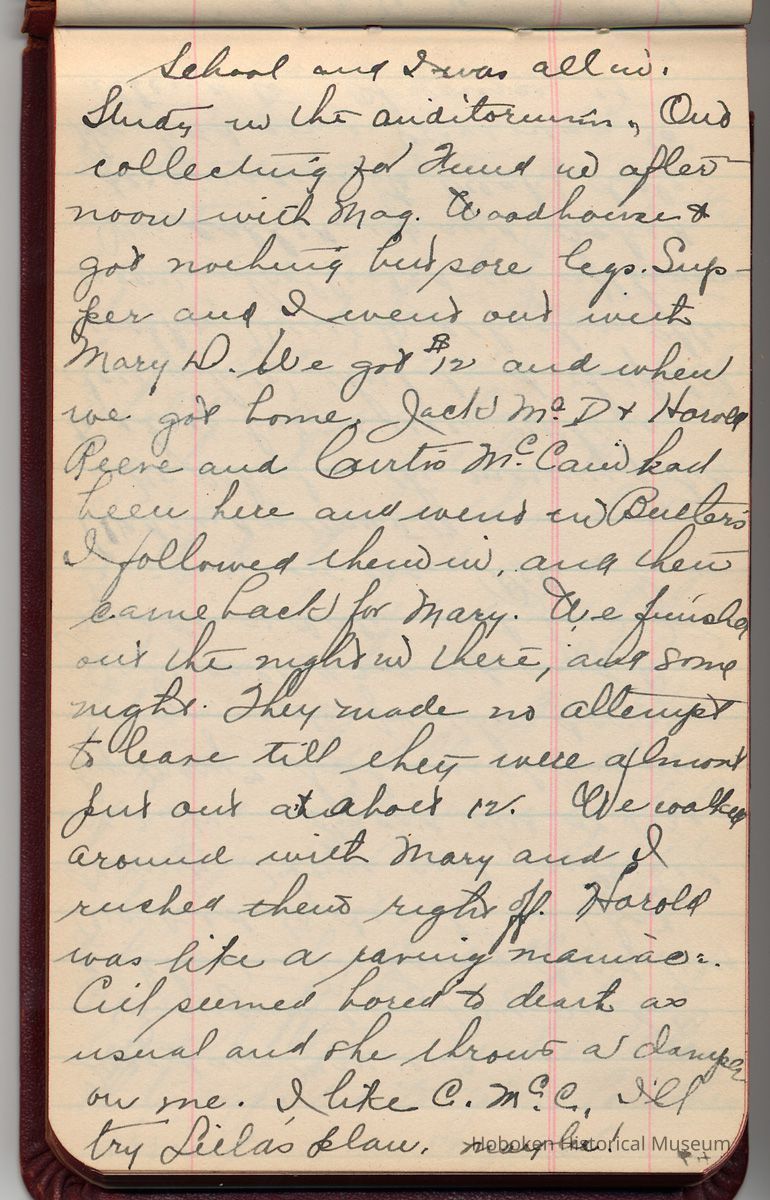 School and I was all in.
Study in the auditorium, Out
collecting for Fund in after-
noon with Mag. Woodhouse &
got nothing but sore legs. Sup-
per and I went out with
Mary D. We got $12 and when
we got home, Jack McD & Harold
Reeve and Curtis McCain had
been here and went in Butler's
I followed them in, and then
came back for Mary. We finished
out the night in there, and some
night. They made no attempt
to leave till they were almost
put out at about 12. We walked
around with Mary and I
rushed them right off. Harold
was like a raving maniac.
Cil seemed bored to death as
usual and she throws a damper
on me. I like C. McC., I'll
try Liela's plan. maybe!
Hoboken Historical Museum